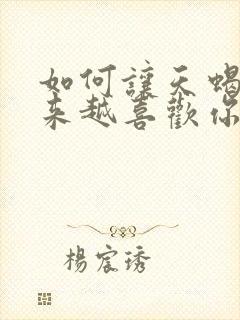 如何讓天蝎
來越喜歡你
楊宸琇